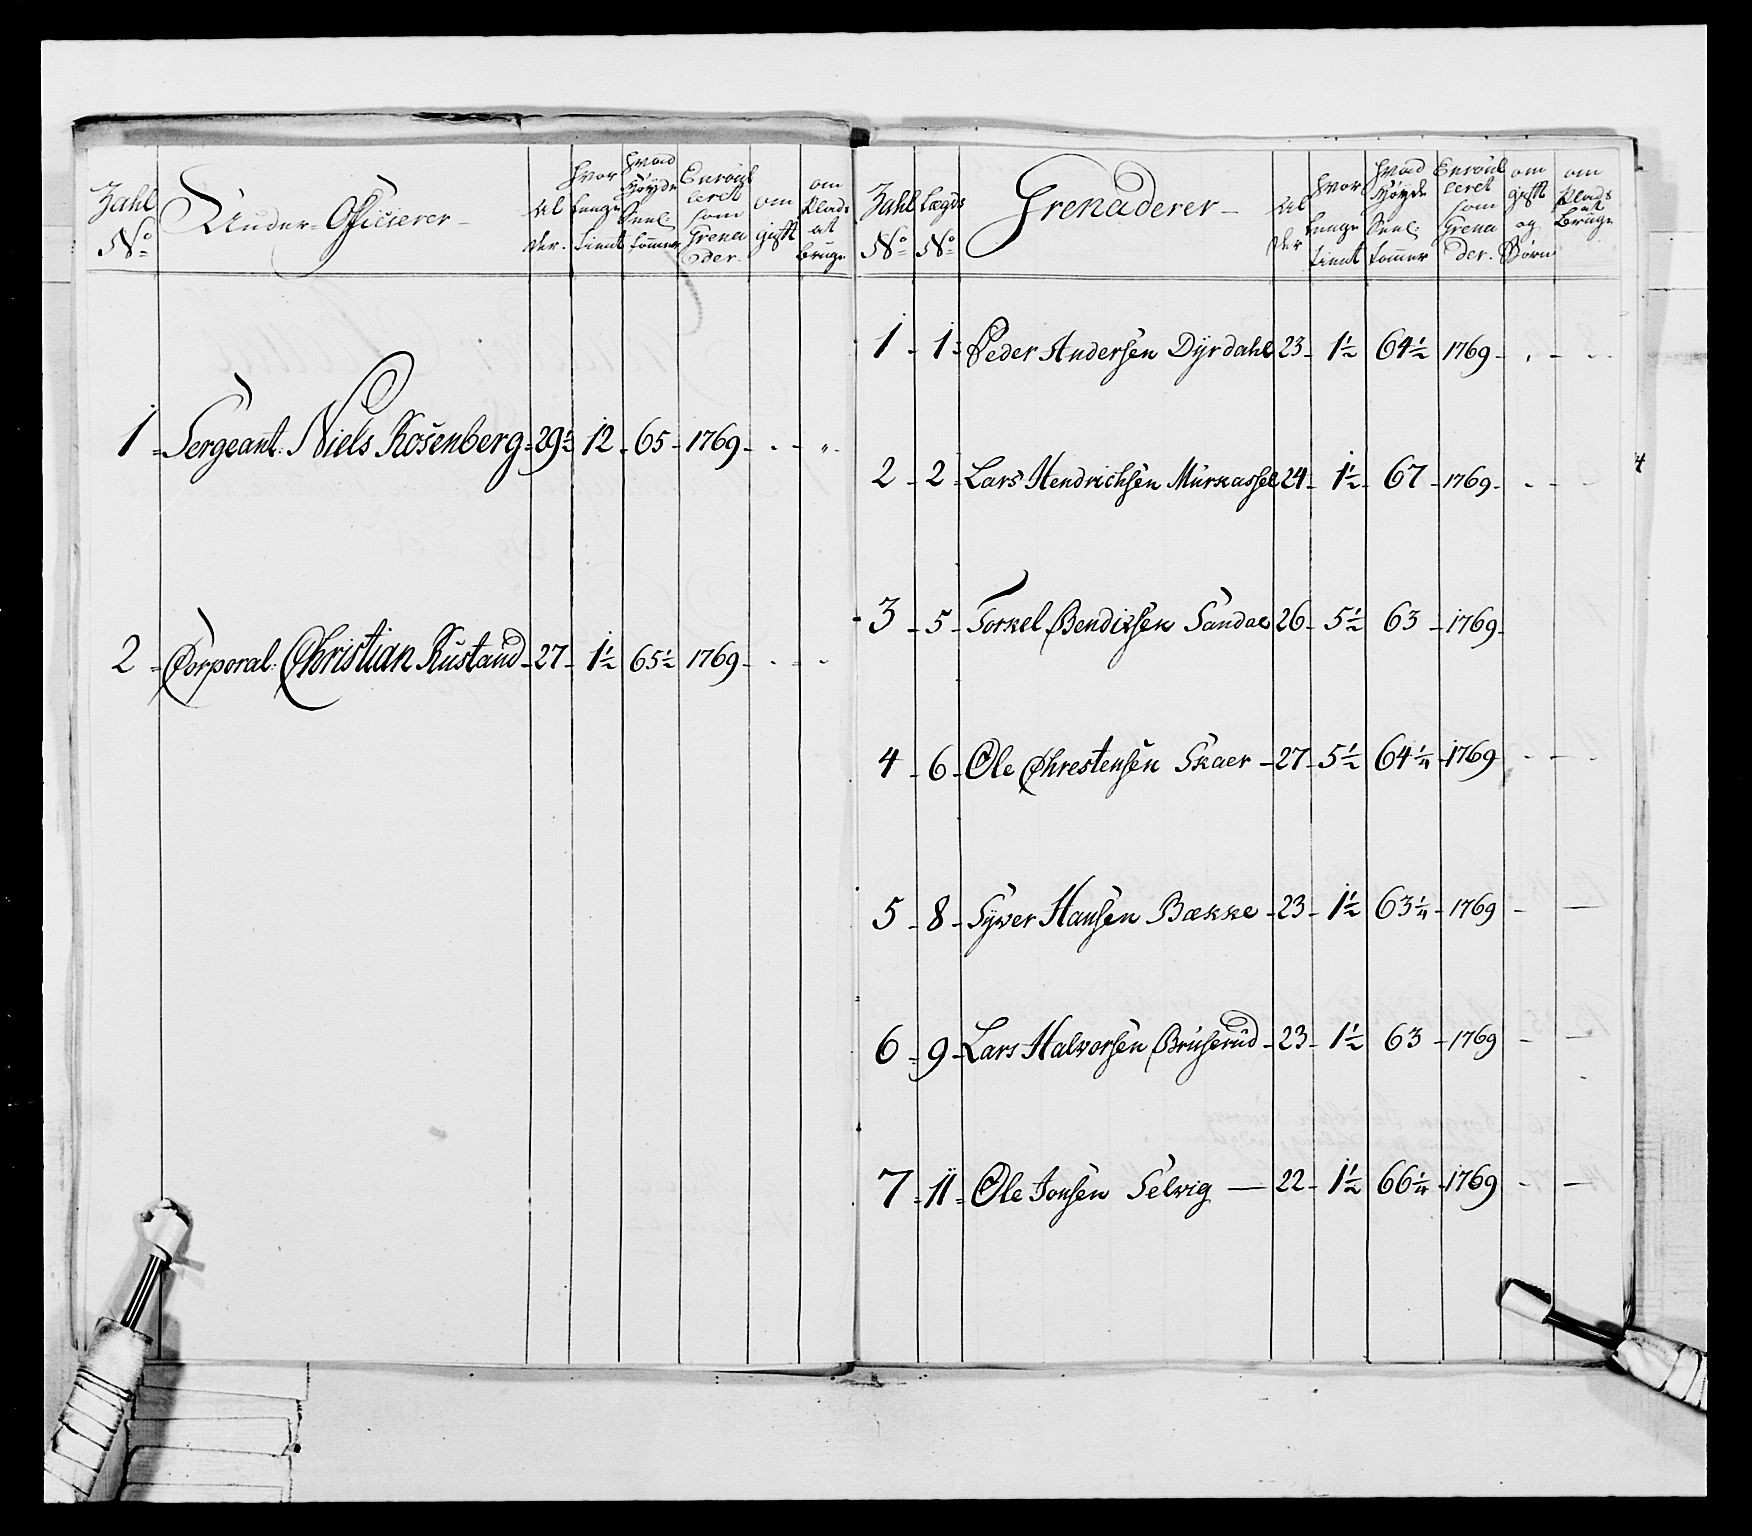 Zahl No | Under-Officierer | Alder. | Hvor lenge tient | Hvad Høyde Sæl. tommer | Enroulleret som Grenader. | om gift | om Plads at bruge
1 Sergeant: Niels Rosenberg 29½ 12 65 1769
2 Corporal: Christian Rustand 27 1½ 65½ 1769
Zahl No | Lægds No | Grenaderer | Alder | Hvor lenge tient | Hvad Høyde Sæl. tommer | Enroulleret som Grenader. | om gift og Børn | om Plads at Bruge
1 1 Peder Andersen Dÿrdahl 23 1½ 64½ 1769
2 2 Lars Hendrichsen Murkassel 24 1½ 67 1769
3 5 Torkel Bendixsen Sandae 26 5½ 63 1769
4 6 Ole Chrestensen Skaer 27 5½ 64¼ 1769
5 8 Sÿwer Hansen Bække 23 1½ 63¼ 1769
6 9 Lars Halvorsen Bruserud 23 1½ 63 1769
7 11 Ole Jonsen Selvig 22 1½ 66¼ 1769